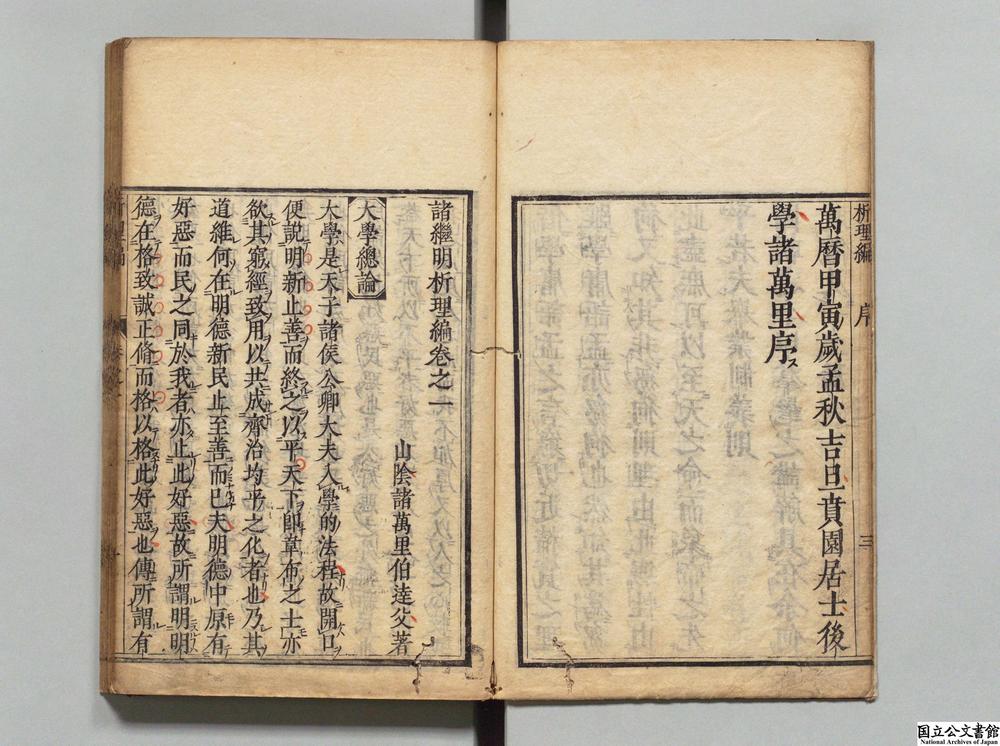 析理編 序 三
萬曆甲寅歲孟秋吉旦賁園居士後
學諸萬里序
諸繼明析理編卷之一
山陰諸萬里伯逵父著
大學總論
大學是天子諸侯公卿大夫入學的法程故開口
便說明新止善而終之以平天下卽草布之士亦
欲其窮經致用以共成齊治均平之化者也乃其
道維何在明德新民止至善而已夫明德中原有
好惡而民之同於我者亦止此好惡故所謂明明
德在格致誠正脩而格以格此好惡也傳所謂有
国立公文書館
National Archives of Japan